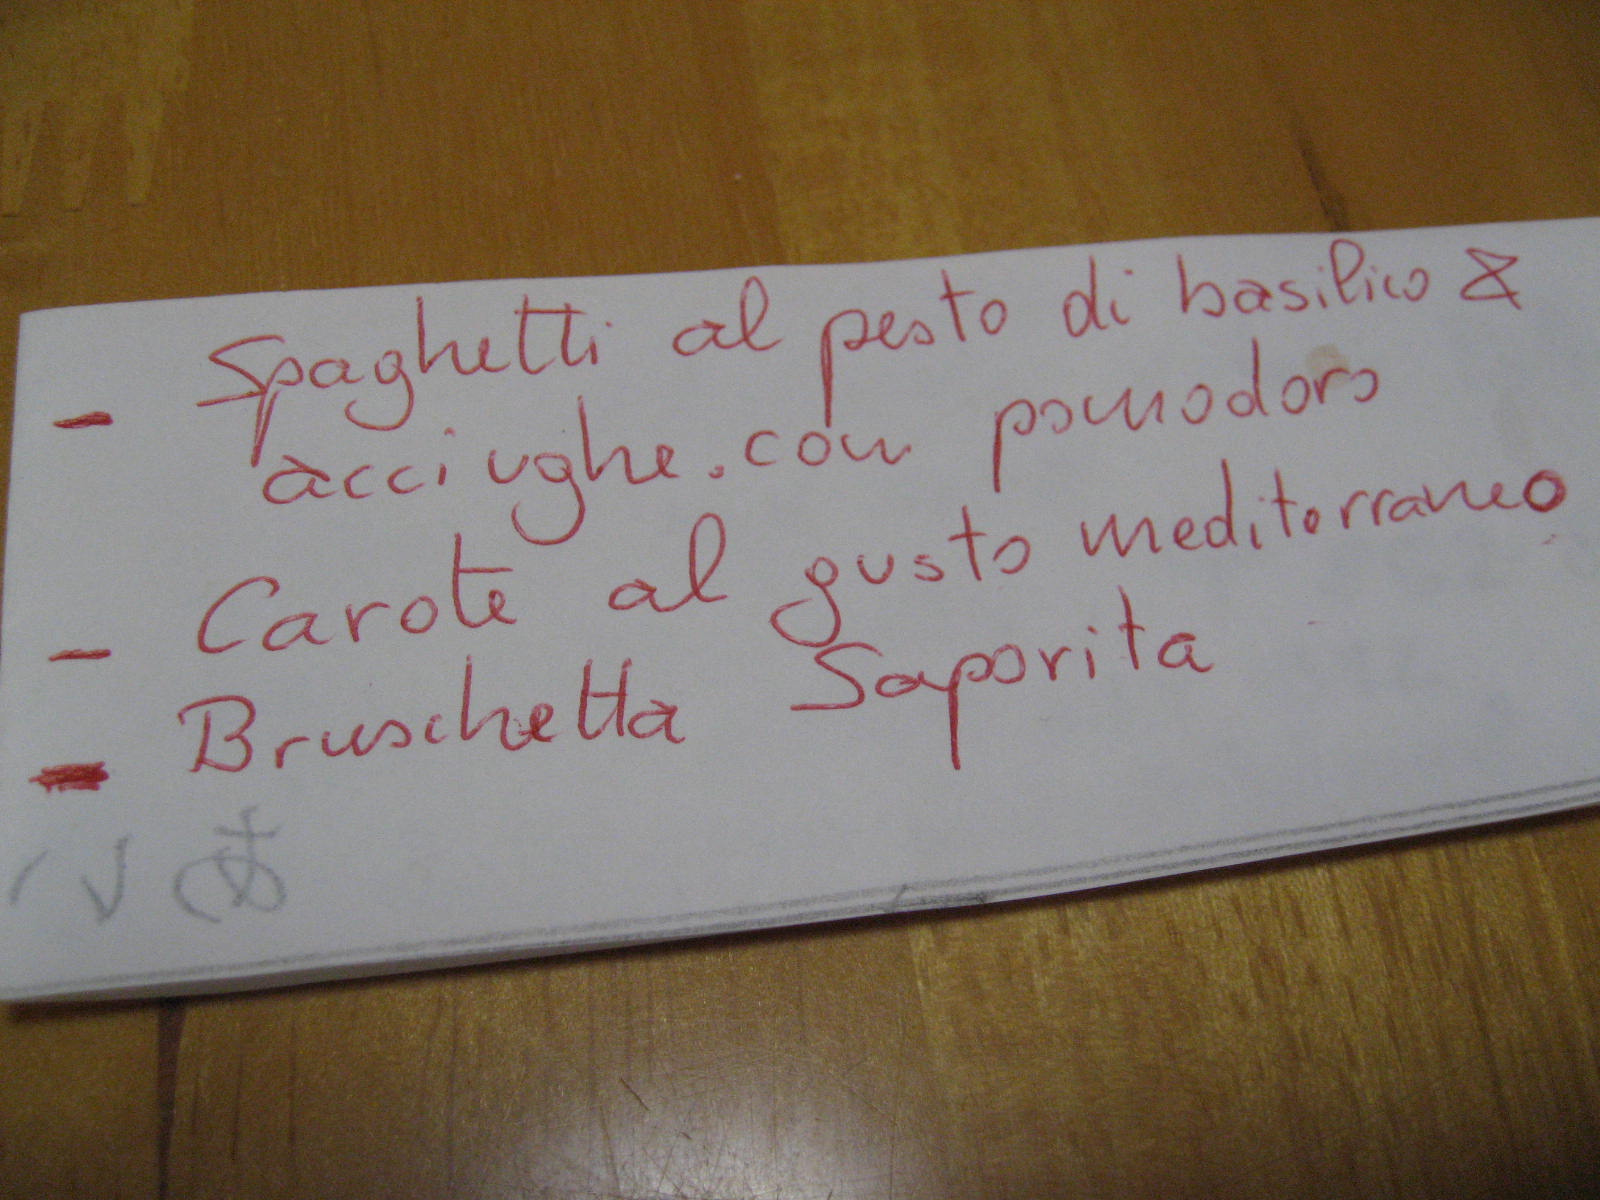 - Spaghetti al pesto di basilico &
acciughe. con pomodoro
- Carote al gusto mediterraneo
- Bruschetta Saporita